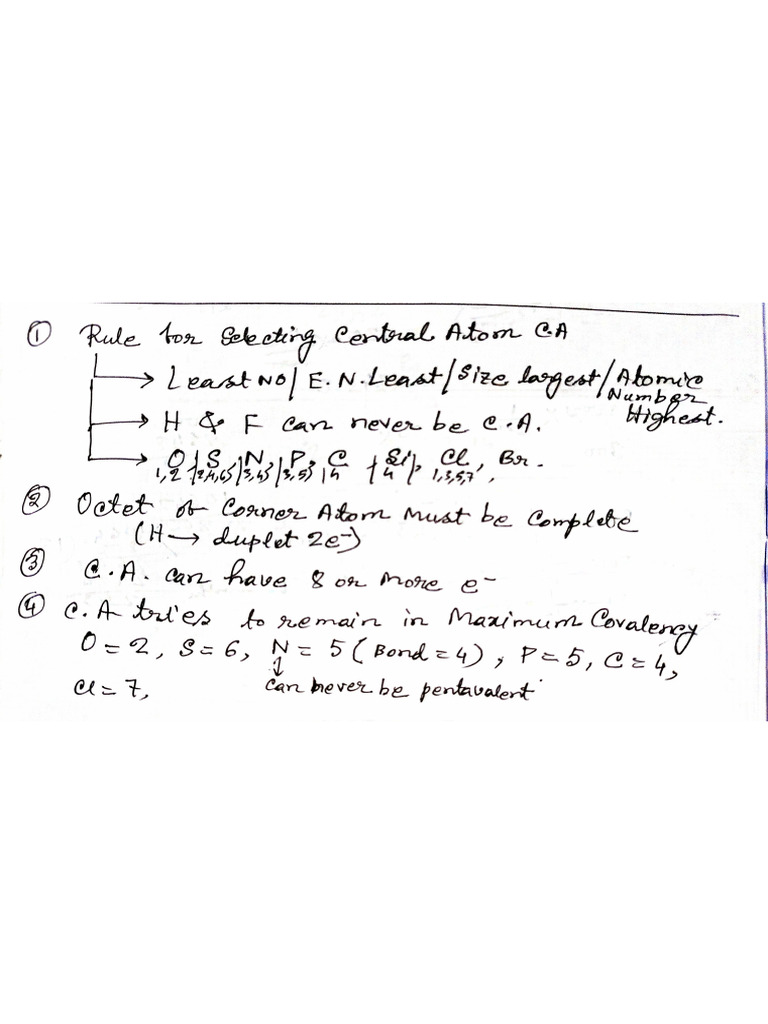 ① Rule for Selecting Central Atom C.A
→ Least NO / E.N. Least / Size largest / Atomic Number Highest.
→ H & F can never be C.A.
→ O, S, N, P, C, Si, Cl, Br.
1,2 2,4,6 3,4 3,5 4 4 1,3,5,7,
② Octet of Corner Atom must be Complete
(H → duplet 2e⁻)
③ C.A. can have 8 or more e⁻
④ C.A tries to remain in Maximum Covalency
O = 2, S = 6, N = 5 (Bond = 4), P = 5, C = 4,
Cl = 7, can never be pentavalent